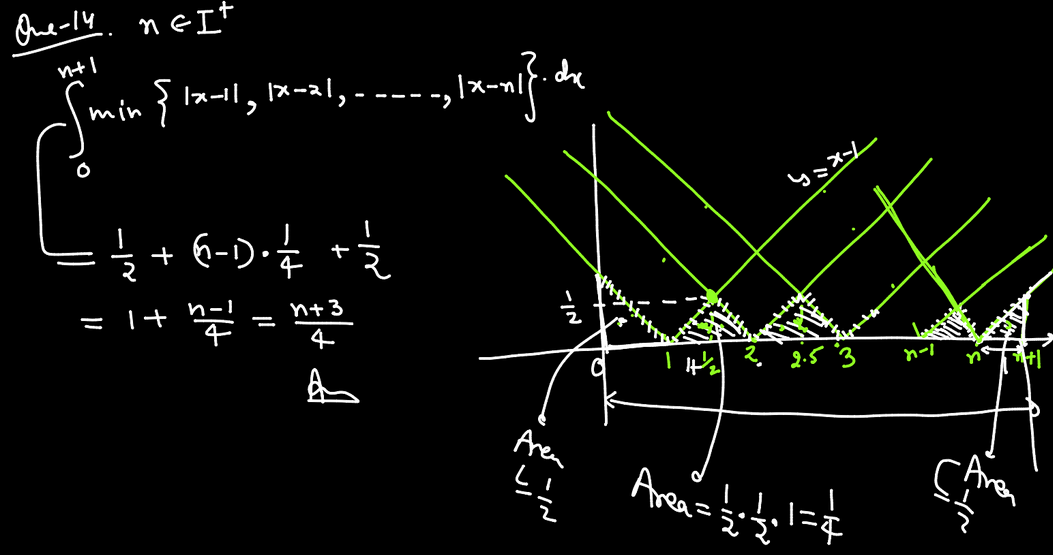 Que-14. n ∈ I⁺
∫₀ⁿ⁺¹ min { |x-1|, |x-2|, -----, |x-n| } · dx
= 1/2 + (n-1) · 1/4 + 1/2
= 1 + (n-1)/4 = (n+3)/4
A
y = x-1
1/2
0 1 1 1/2 2 2.5 3 n-1 n n+1
1
Area = 1/2
Area = 1/2 · 1/2 · 1 = 1/4
Area = 1/2